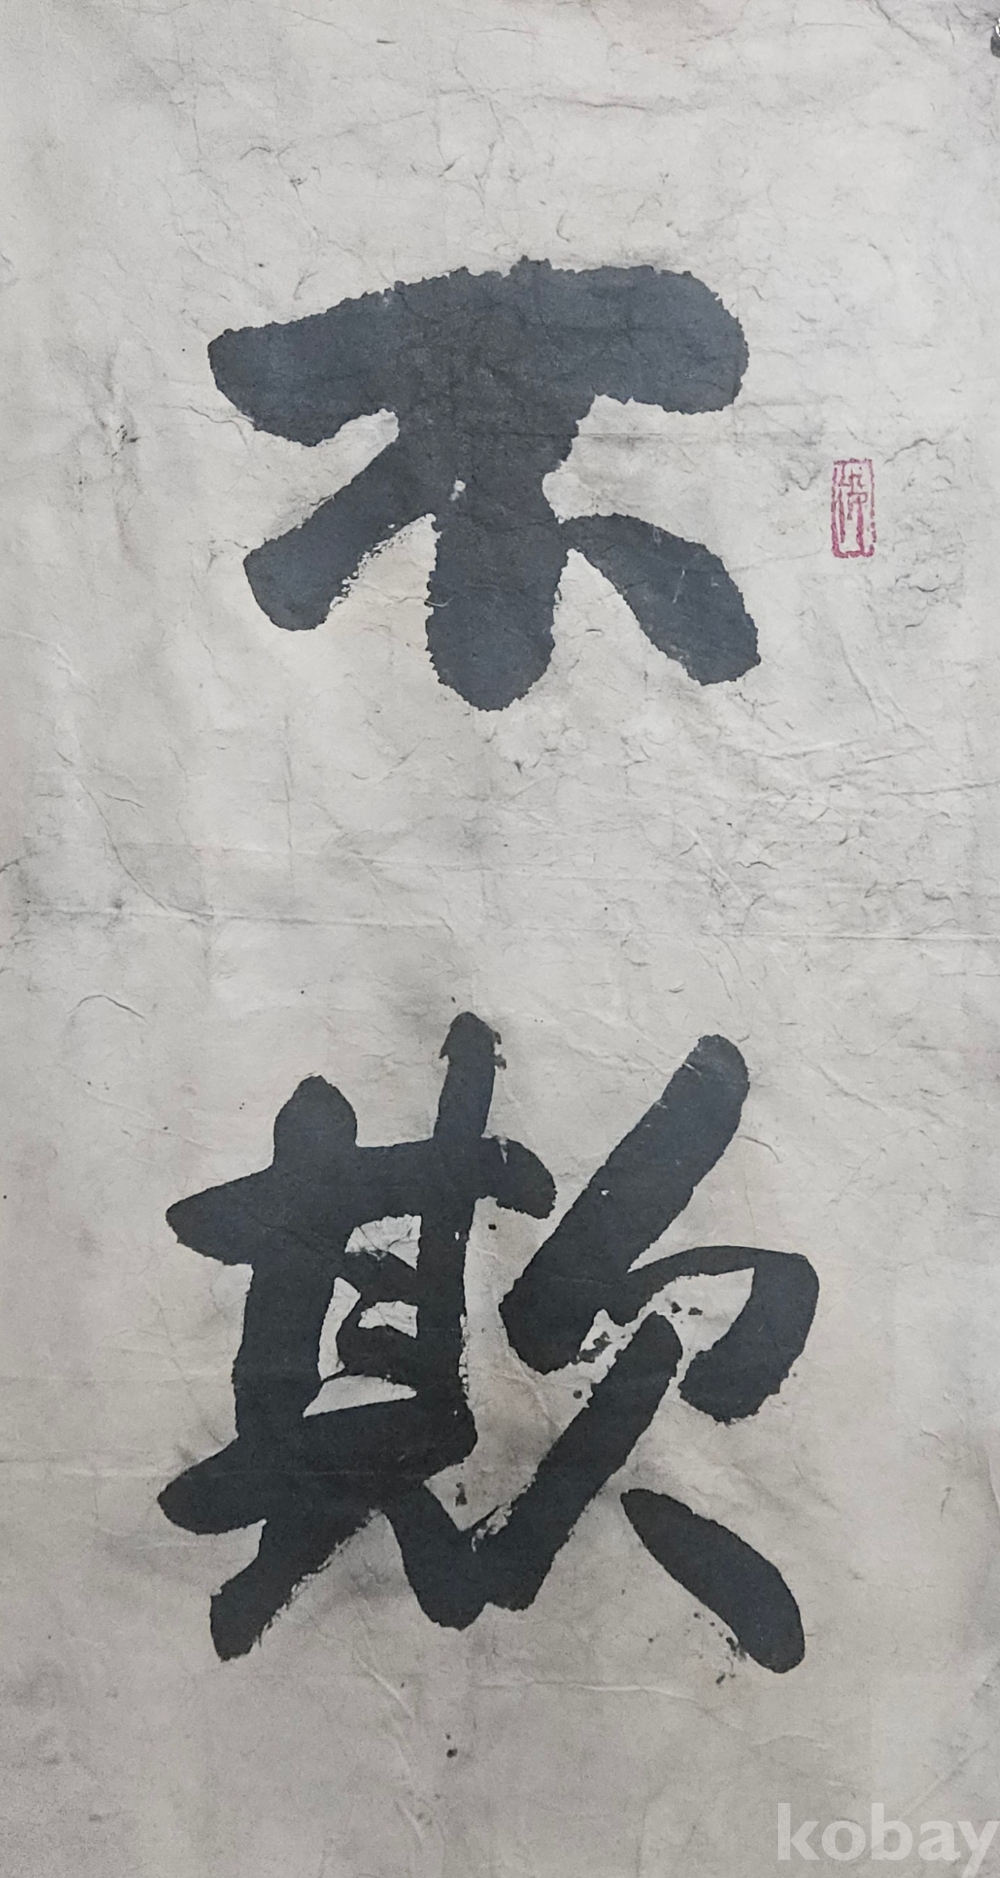 不
欺
kobay